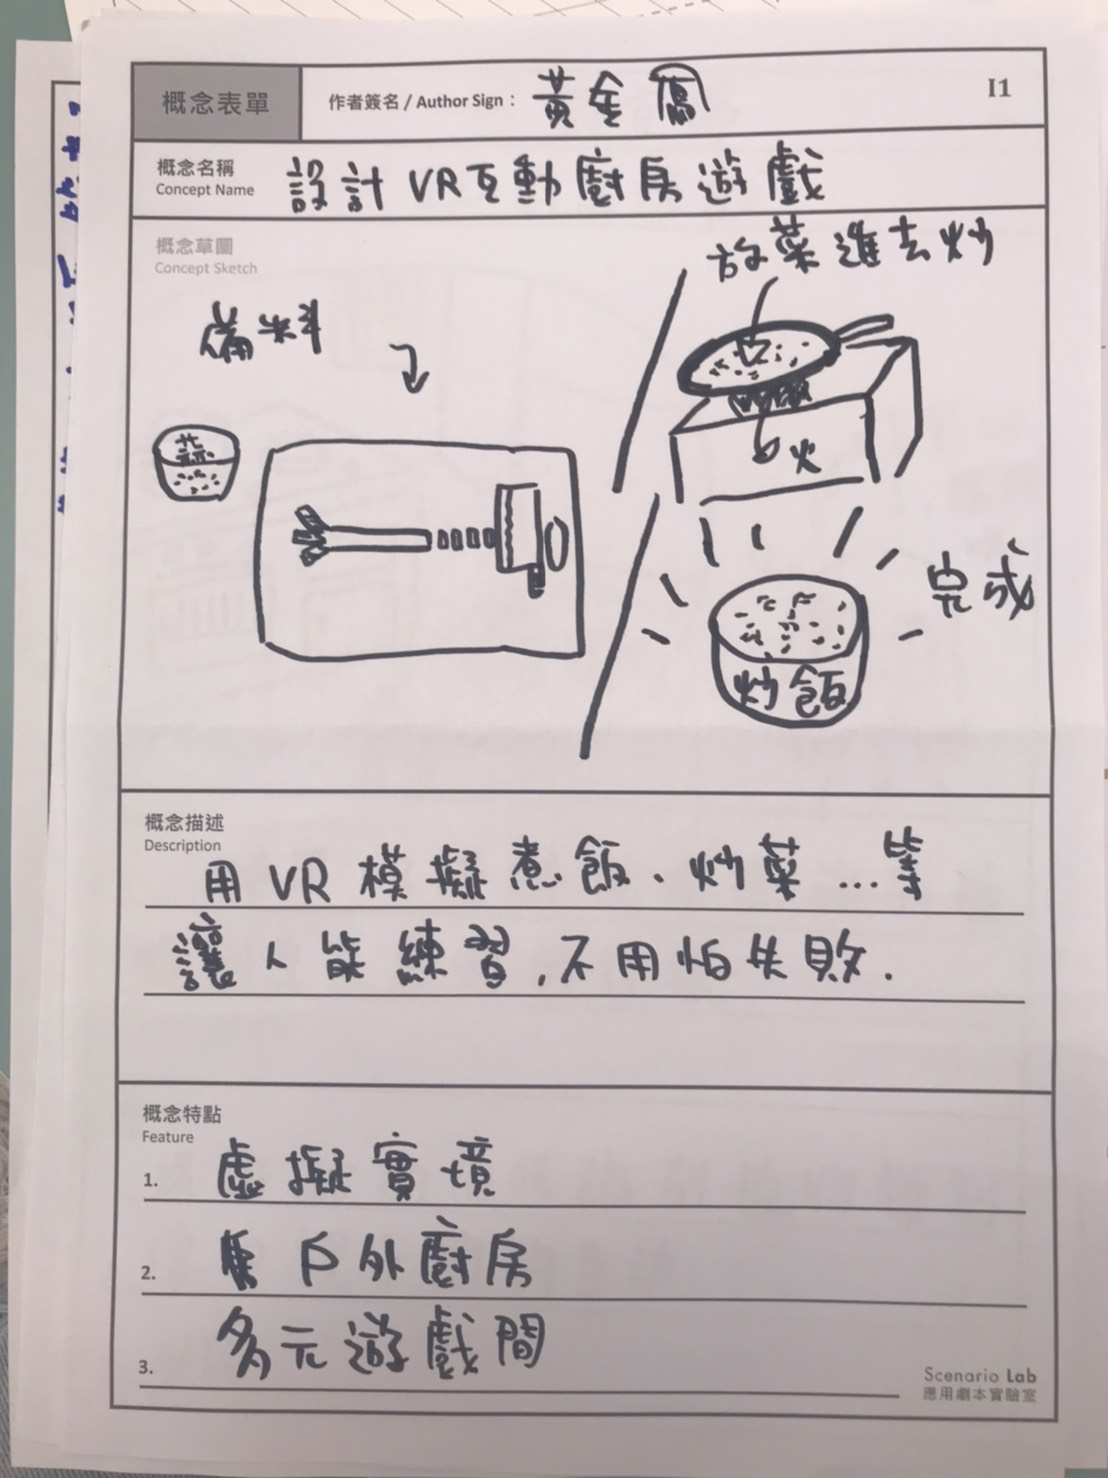 概念表單
作者簽名 / Author Sign：黃金鳳
I1
概念名稱
Concept Name
設計VR互動廚房遊戲
概念草圖
Concept Sketch
備料
蒜
放菜進去炒
火
完成
炒飯
概念描述
Description
用VR模擬煮飯、炒菜...等
讓人能練習,不用怕失敗.
概念特點
Feature
1. 虛擬實境
2. 戶外廚房
3. 多元遊戲間
Scenario Lab
應用劇本實驗室